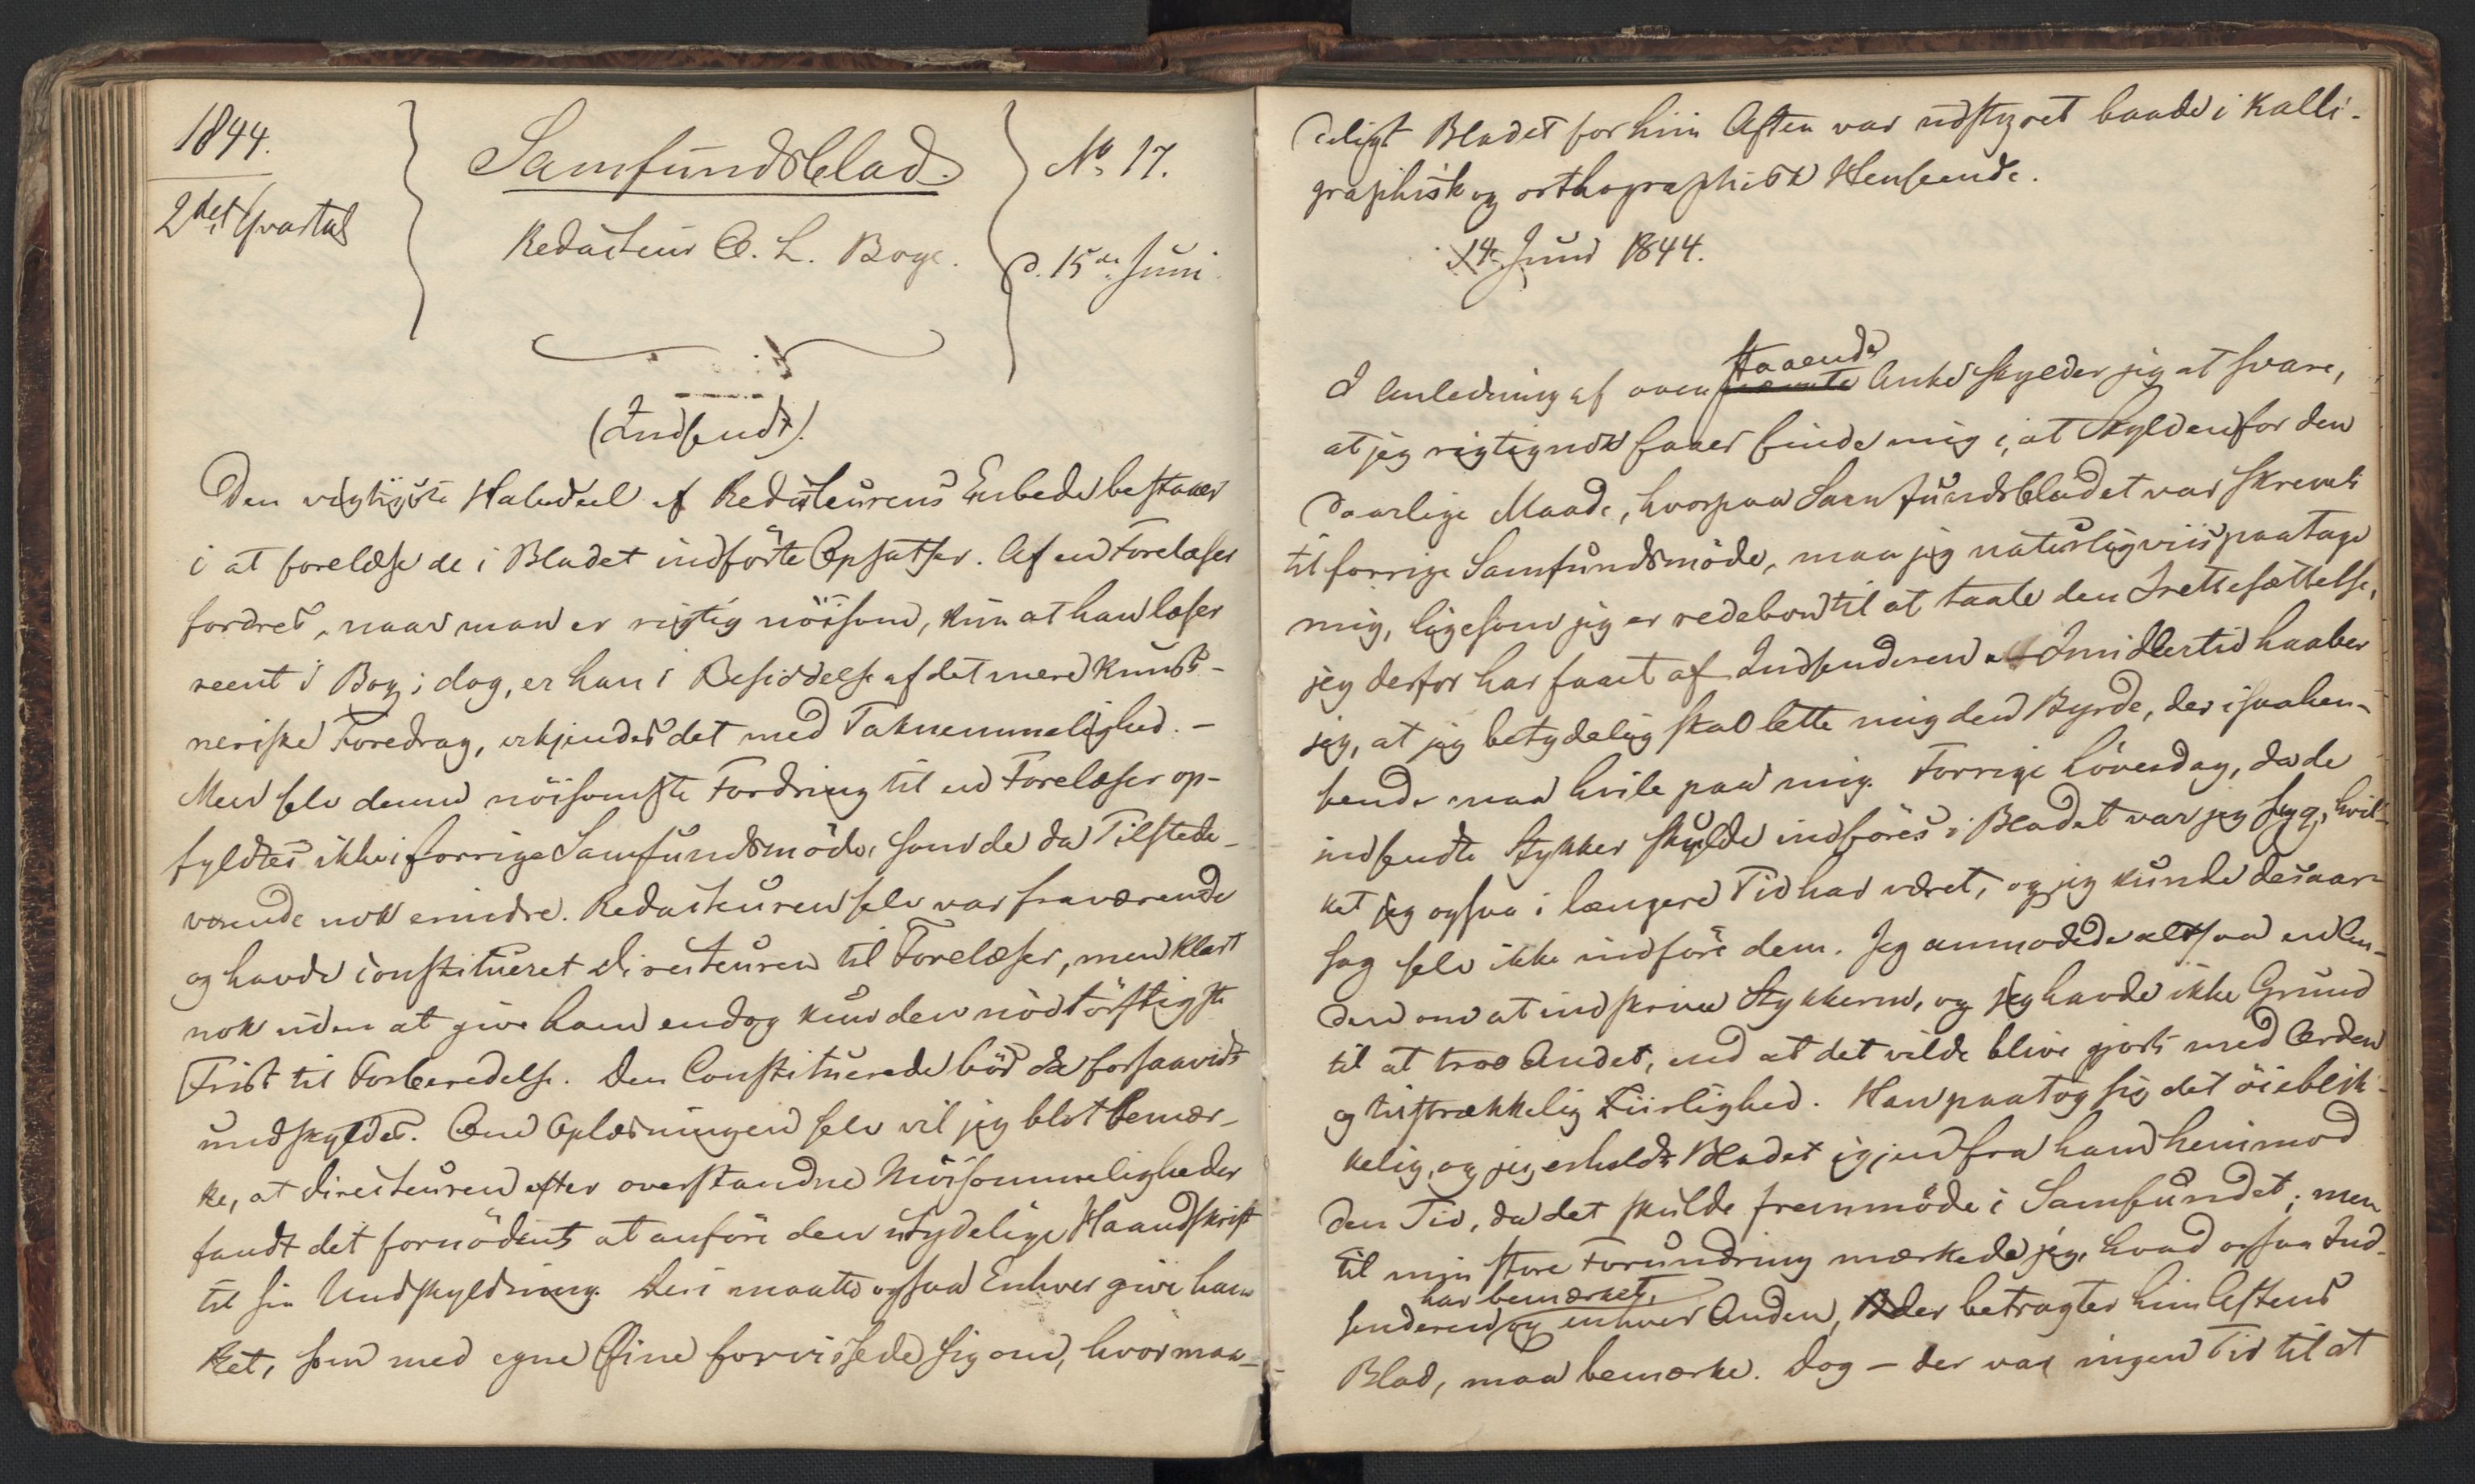 1844.
2det Qvartal
Samfundsblad.
Redacteur O. L. Boye.
No 17.
d. 15de Juni
(Indsendt).
Den vigtigste Halvdeel af Redacteurens Embede bestaaer
i at forelæse de i Bladet indförte Opsatser. Af en Forelæser
fordres, naar man er rigtig nöisom, kun at han læser
reent i Bog; dog, er han i Besiddelse af det mere kunst-
neriske Foredrag, erkjendes det med Taknemmelighed. –
Men selv denne nöisomste Fordring til en Forelæser op-
fyldtes ikke i forrige Samfundsmöde, som de da Tilstede-
værende nok erindre. Redacteuren selv var fraværende
og havde constitueret Directeuren til Forelæser, men klart
nok uden at give ham endog kun den nödtörftigste
Frist til Forberedelse. Den Constituerede bör da forsaavidt
undskyldes. Om Oplæsningen selv vil jeg blot bemær-
ke, at Directeuren efter overstandne Möisommeligheder
fandt det fornödent at anföre den utydelige Haandskrift
til sin Undskyldning. Deri maatte ogsaa Enhver give ham
Ret, som med egne Öine forvissede sig om, hvor maa-
deligt Bladet for hiin Aften var udstyret baade i kalli-
graphisk og orthographisk Henseende.
14 Juni 1844.
I Anledning af oven staaende nævnte Anke skylder jeg at svare,
at jeg rigtignok faaer finde mig i, at Skylden for den
daarlige Maade, hvorpaa Samfundsbladet var skrevet
til forrige Samfundsmöde, maa jeg naturligviis paatage
mig, ligesom jeg er redebon til at taale den Irettesættelse,
jeg derfor har faaet af Indsenderen. Imidlertid haaber
jeg, at jeg betydelig skal lette mig den Byrde, der i saahen-
seende maa hvile paa mig. Forrige Löverdag, da de
indsendte Stykker skulde indföres i Bladet var jeg syg, hvil-
ket jeg ogsaa i længere Tid har været, og jeg kunde desaar-
sag selv ikke indföre dem. Jeg anmodede altsaa en An-
den om at indskrive Stykkerne, og jeg havde ikke Grund
til at troe Andet, end at det vilde blive gjort med Orden
og tilstrækkelig Ziirlighed. Han paatog sig det öieblik-
kelig, og jeg erholdt Bladet igjen fra ham henimod
den Tid, da det skulde fremmöde i Samfundet; men
til min store Forundring mærkede jeg, hvad ogsaa Ind-
har bemærket,
senderen og enhver Anden, der betragter hiin Aftens
Blad, maa bemærke. Dog – der var ingen Tid til at